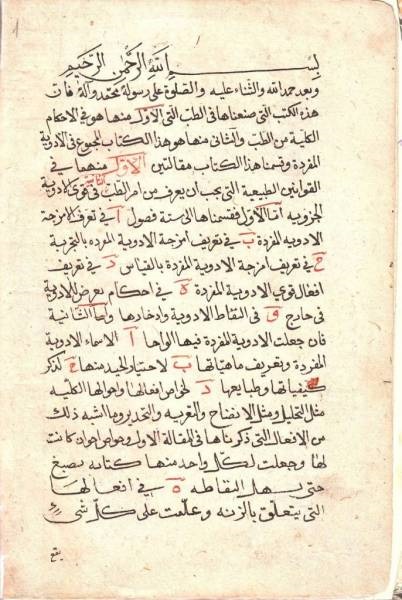 بسم الله الرحمن الرحيم
وبعد حمد الله والثناء عليه والصلوة على رسوله محمد وآله فان
هذه الكتب التي صنعناها في الطب التي الاول منها هو في الاحكام
الكلية من الطب والثاني منها هو هذا الكتاب المجموع في الادوية
المفردة وقسمنا هذا الكتاب مقالتين الاولى منهما في
القوانين الطبيعية التي يجب ان يعرف من امر الطب في قوى الادوية
الثانية
الجزويه اما الاول فقسمناها الى ستة فصول ا في تعرف امزجة
الادويه المفردة ب في تعريف امزجة الادوية المفرده بالتجربة
ج في تعريف امزجة الادوية المفردة بالقياس د في تعريف
افعال قوى الادوية المفردة ه في احكام يعرض للادوية
في خارج و في التقاط الادوية وادخارها واما الثانية
فان جعلت الادوية المفردة فيها الواحا ا الاسماء الادوية
المفردة وتعريف ماهياتها ب لاختيار الجيد منها ج لذكر
كيفياتها وطبايعها د لخواص افعالها واحوالها الكليه
مثل التحليل ومثل الانضاج والتغريه والتخدير وما اشبه ذلك
من الافعال التي ذكرناها في المقالة الاولى وخواص اخرى ان كانت
لها وجعلت لكل واحد منها كتابه بصبغ
حتى يسهل التقاطه ه في افعالها
التي يتعلق بالزنه وعلمت على كل شي
يقع